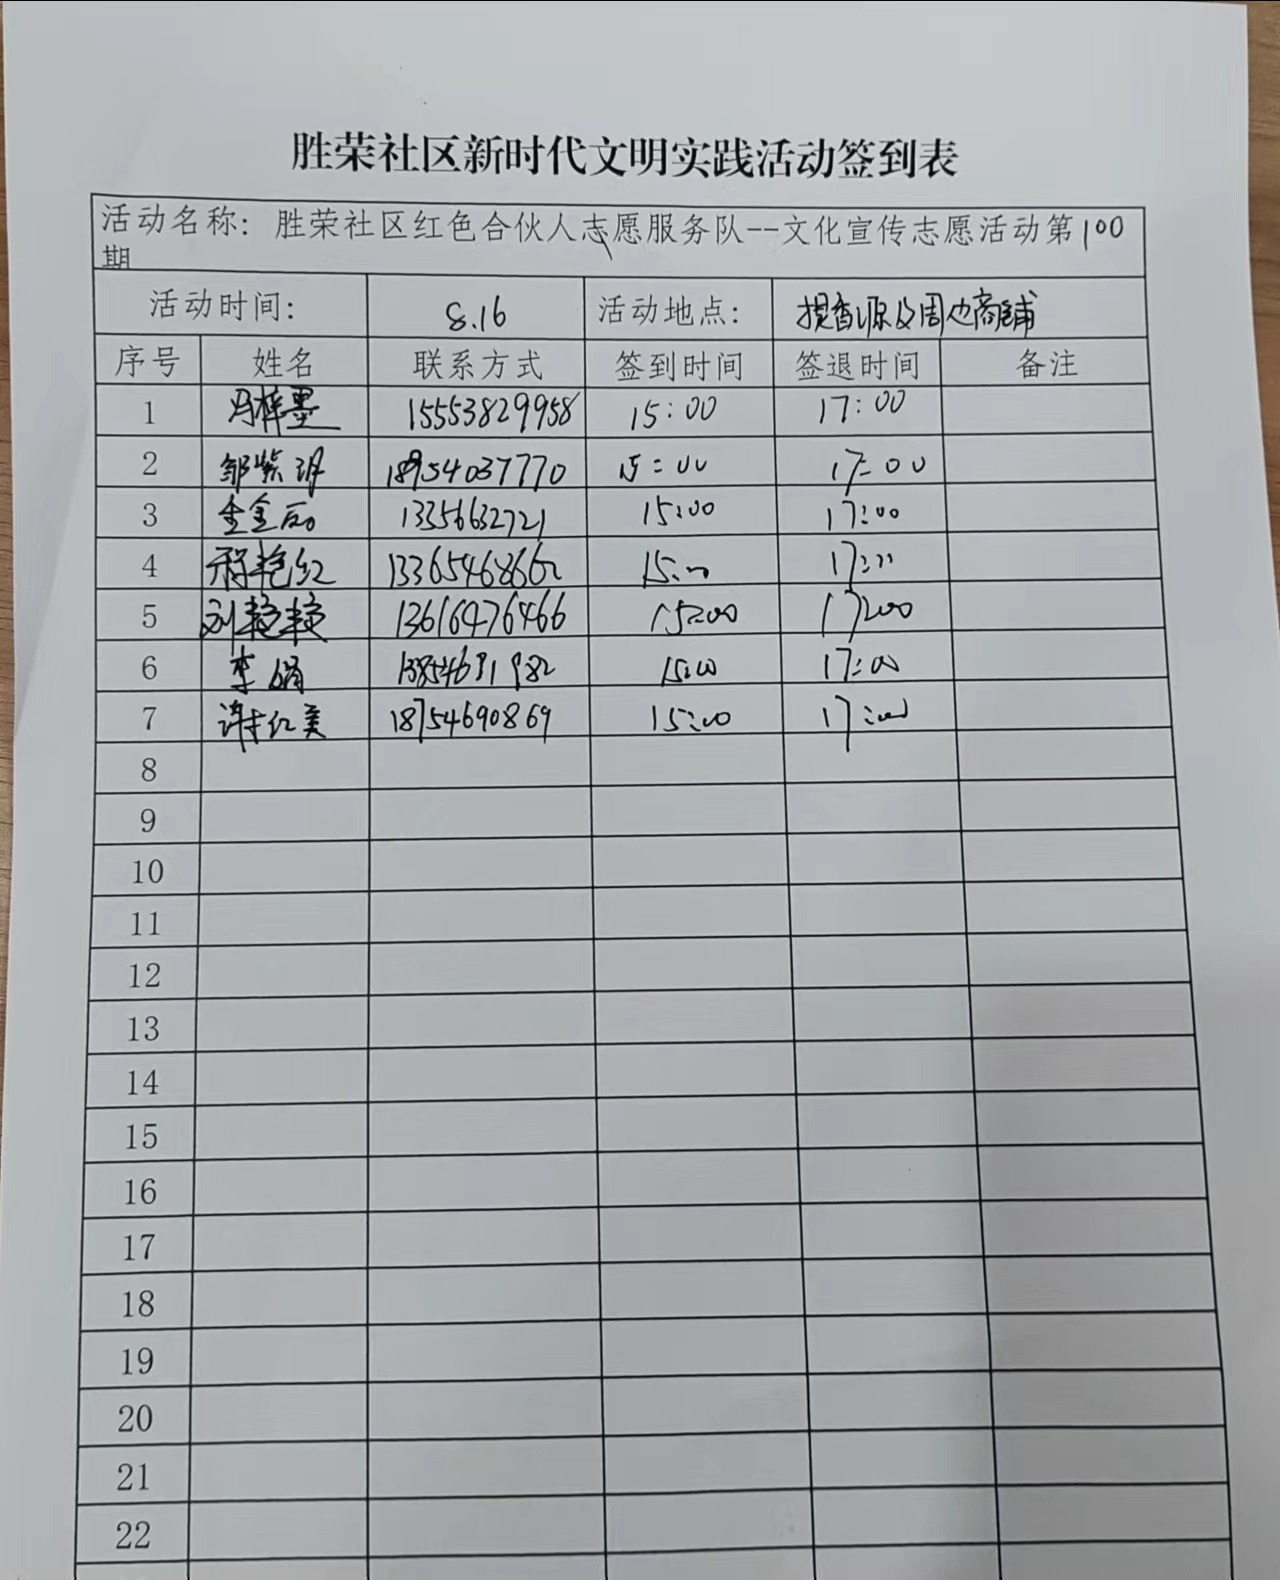 胜荣社区新时代文明实践活动签到表
活动名称：胜荣社区红色合伙人志愿服务队--文化宣传志愿活动第100
期
活动时间： 8.16 活动地点： 提香源及周边商铺
序号 姓名 联系方式 签到时间 签退时间 备注
1 冯梓墨 15553829958 15:00 17:00
2 邹紫玥 18954037770 15:00 17:00
3 13356632721 15:00 17:00
4 程艳红 13365468662 15:00 17:00
5 刘艳艳 13616476466 15:00 17:00
6 李娟 13854631982 15:00 17:00
7 谢红美 18754690869 15:00 17:00
8
9
10
11
12
13
14
15
16
17
18
19
20
21
22